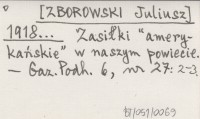 [ZBOROWSKI Juliusz]
1918... Zasiłki "amery-
kańskie" w naszym powiecie.
— Gaz. Podh. 6, nr 27: 2-3.